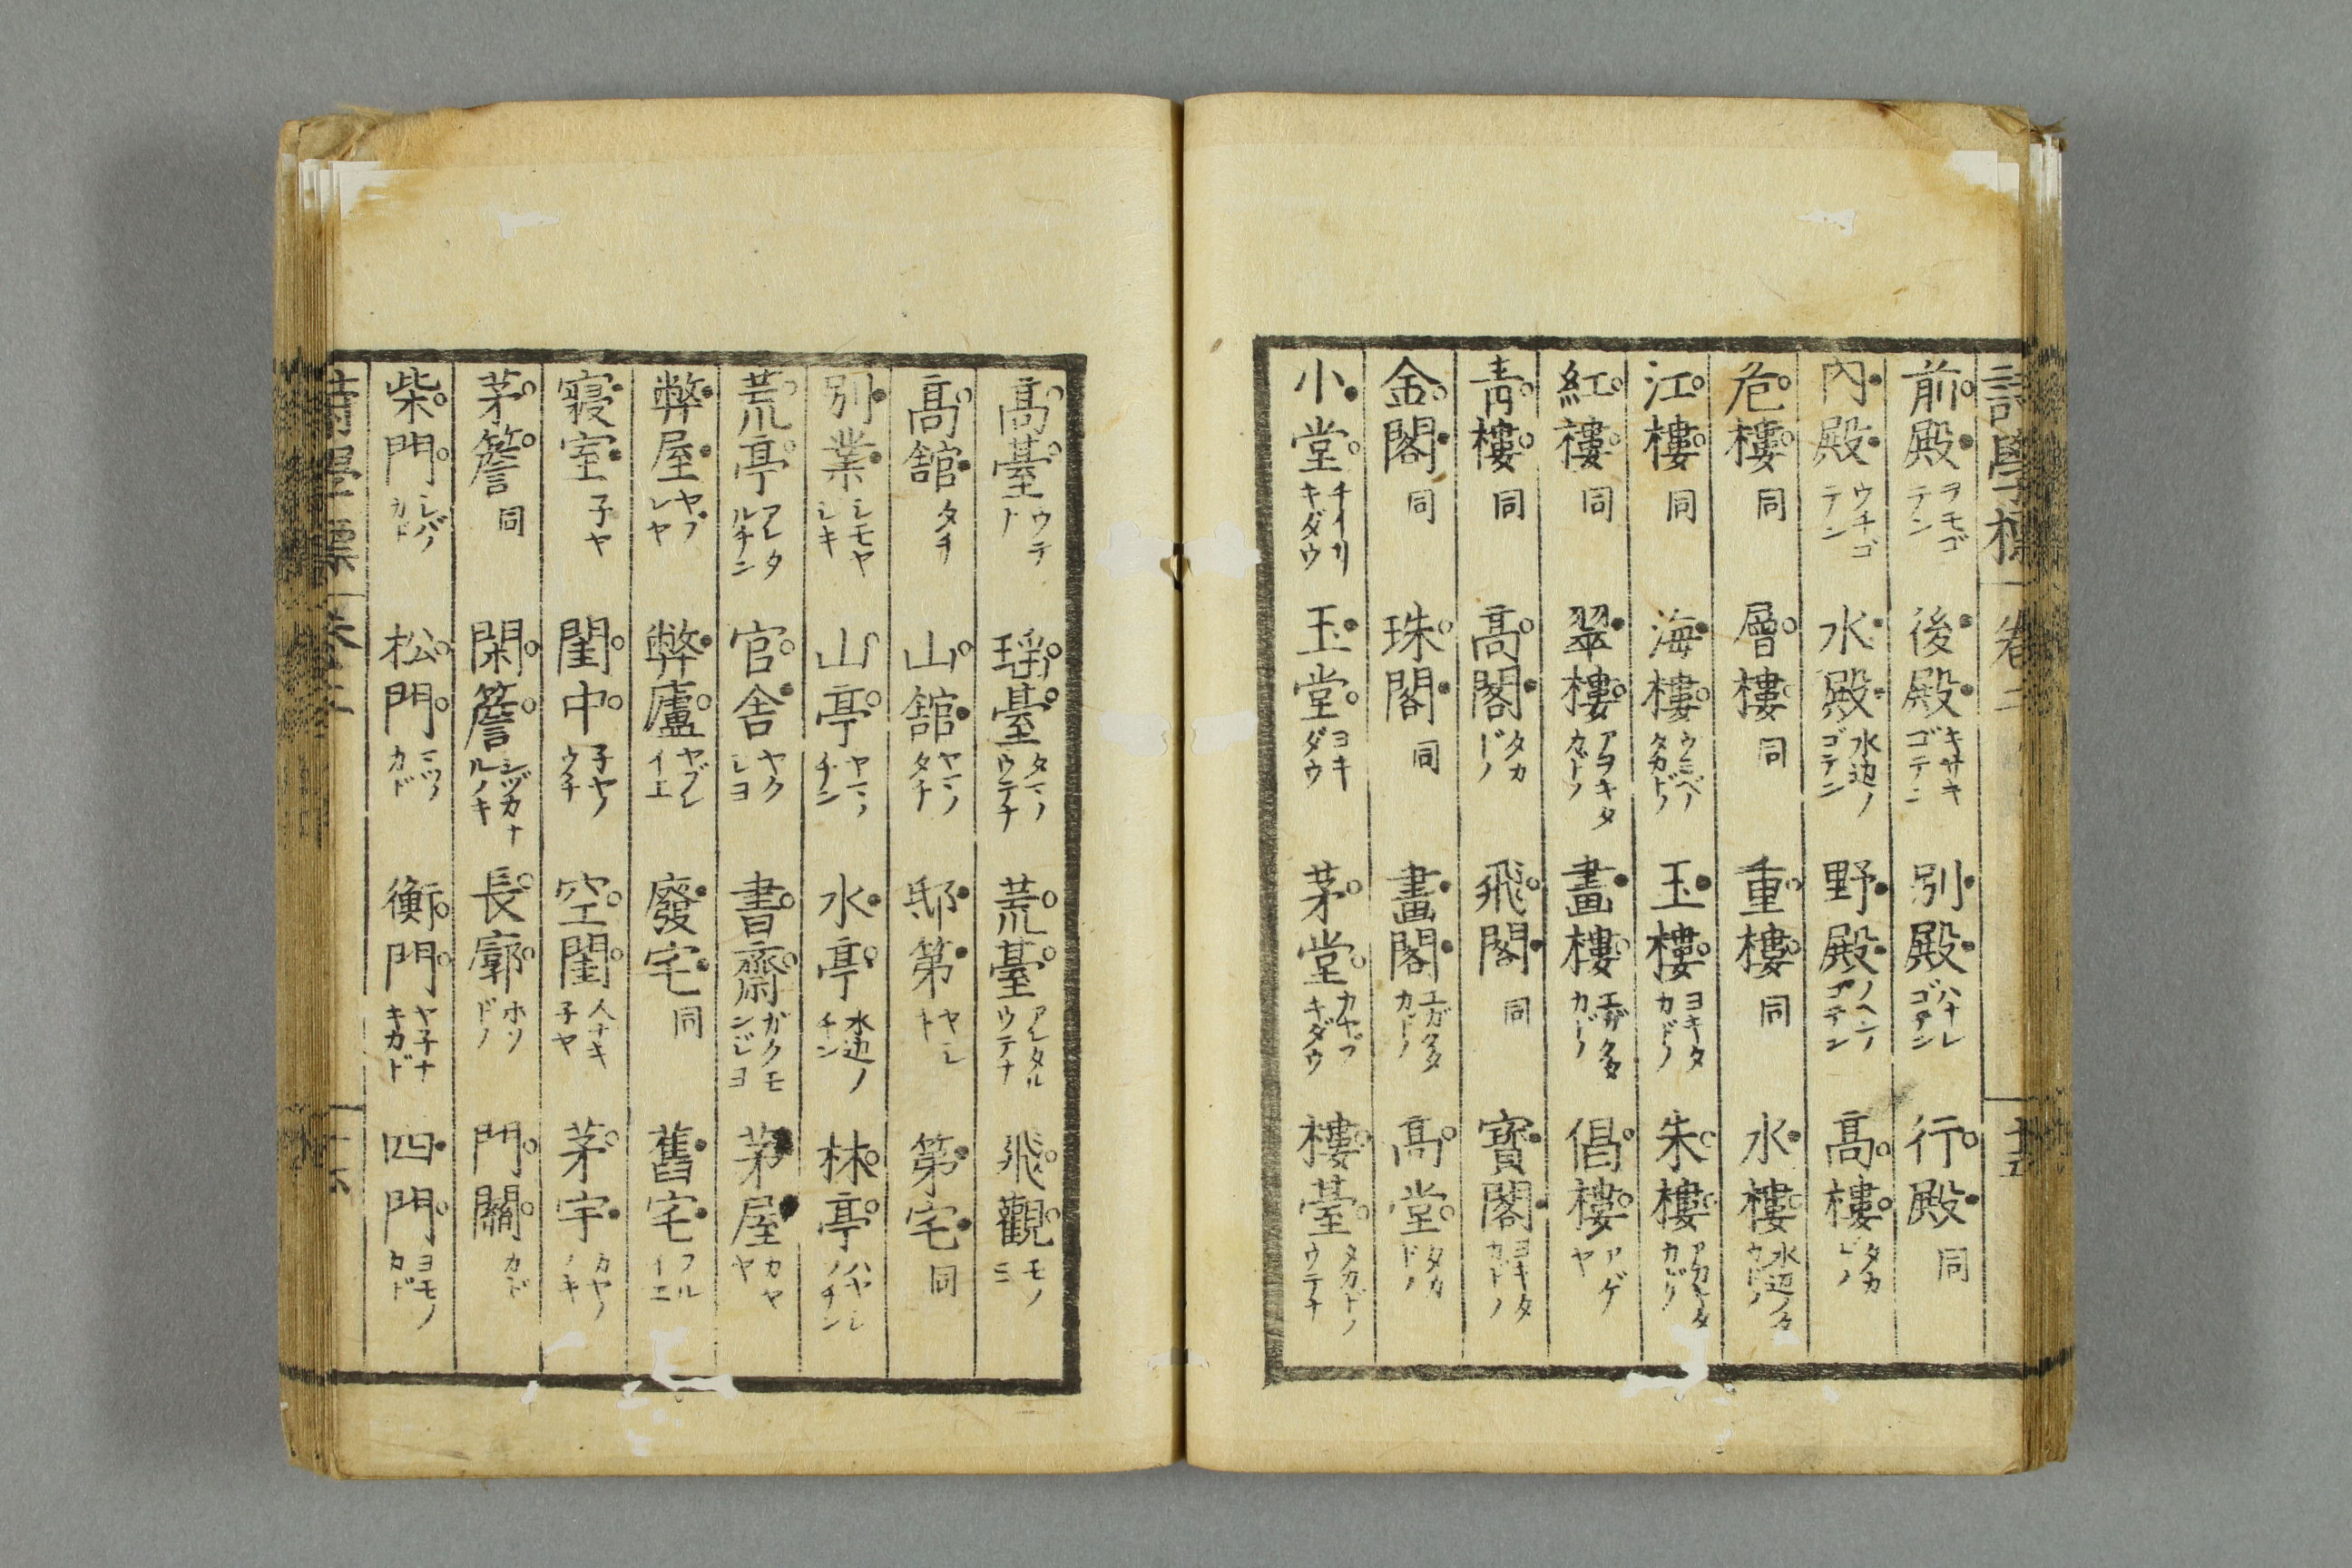 詩學標 卷二 十五
前殿 ヲモゴテン 後殿 キサキゴテン 別殿 ハナレゴテン 行殿 同
內殿 ウチゴテン 水殿 水辺ノゴテン 野殿 ノヘンノゴテン 高樓 タカドノ
危樓 同 層樓 同 重樓 同 水樓 水辺ノタカドノ
江樓 同 海樓 ウミベノタカドノ 玉樓 ヨキタカドノ 朱樓
紅樓 同 翠樓 アヲキタカドノ 畫樓 カドノ 倡樓 アゲヤ
靑樓 同 高閣 タカドノ 飛閣 同 寳閣 ヨキタカドノ
金閣 同 珠閣 同 畫閣 高堂 タカドノ
小堂 チイサキダウ 玉堂 ヨキダウ 茅堂 カヤブキダウ 樓䑓 タカドノウテナ
高䑓 ウテナ 瑶䑓 タマノウテナ 荒䑓 アレタルウテナ 飛觀 モノミ
高舘 タチ 山舘 ヤマノタチ 邸第 ヤシキ 第宅 同
別業 シモヤシキ 山亭 ヤマノチン 水亭 水辺ノチン 林亭 ハヤシノチン
荒亭 アレタルチン 官舎 ヤクシヨ 書齋 ガクモンジヨ 茅屋 カヤヤ
弊屋 ヤブレヤ 弊廬 ヤブレイエ 廢宅 同 舊宅 フルイエ
寢室 子ヤ 閨中 子ヤノウチ 空閨 人ナキ子ヤ 茅宇 カヤノノキ
茅簷 同 閑簷 シヅカナルノキ 長廓 ホソドノ 門闗 カド
柴門 シバノカド 松門 マツノカド 衡門 ヤ子ナキカド 四門 ヨモノカド